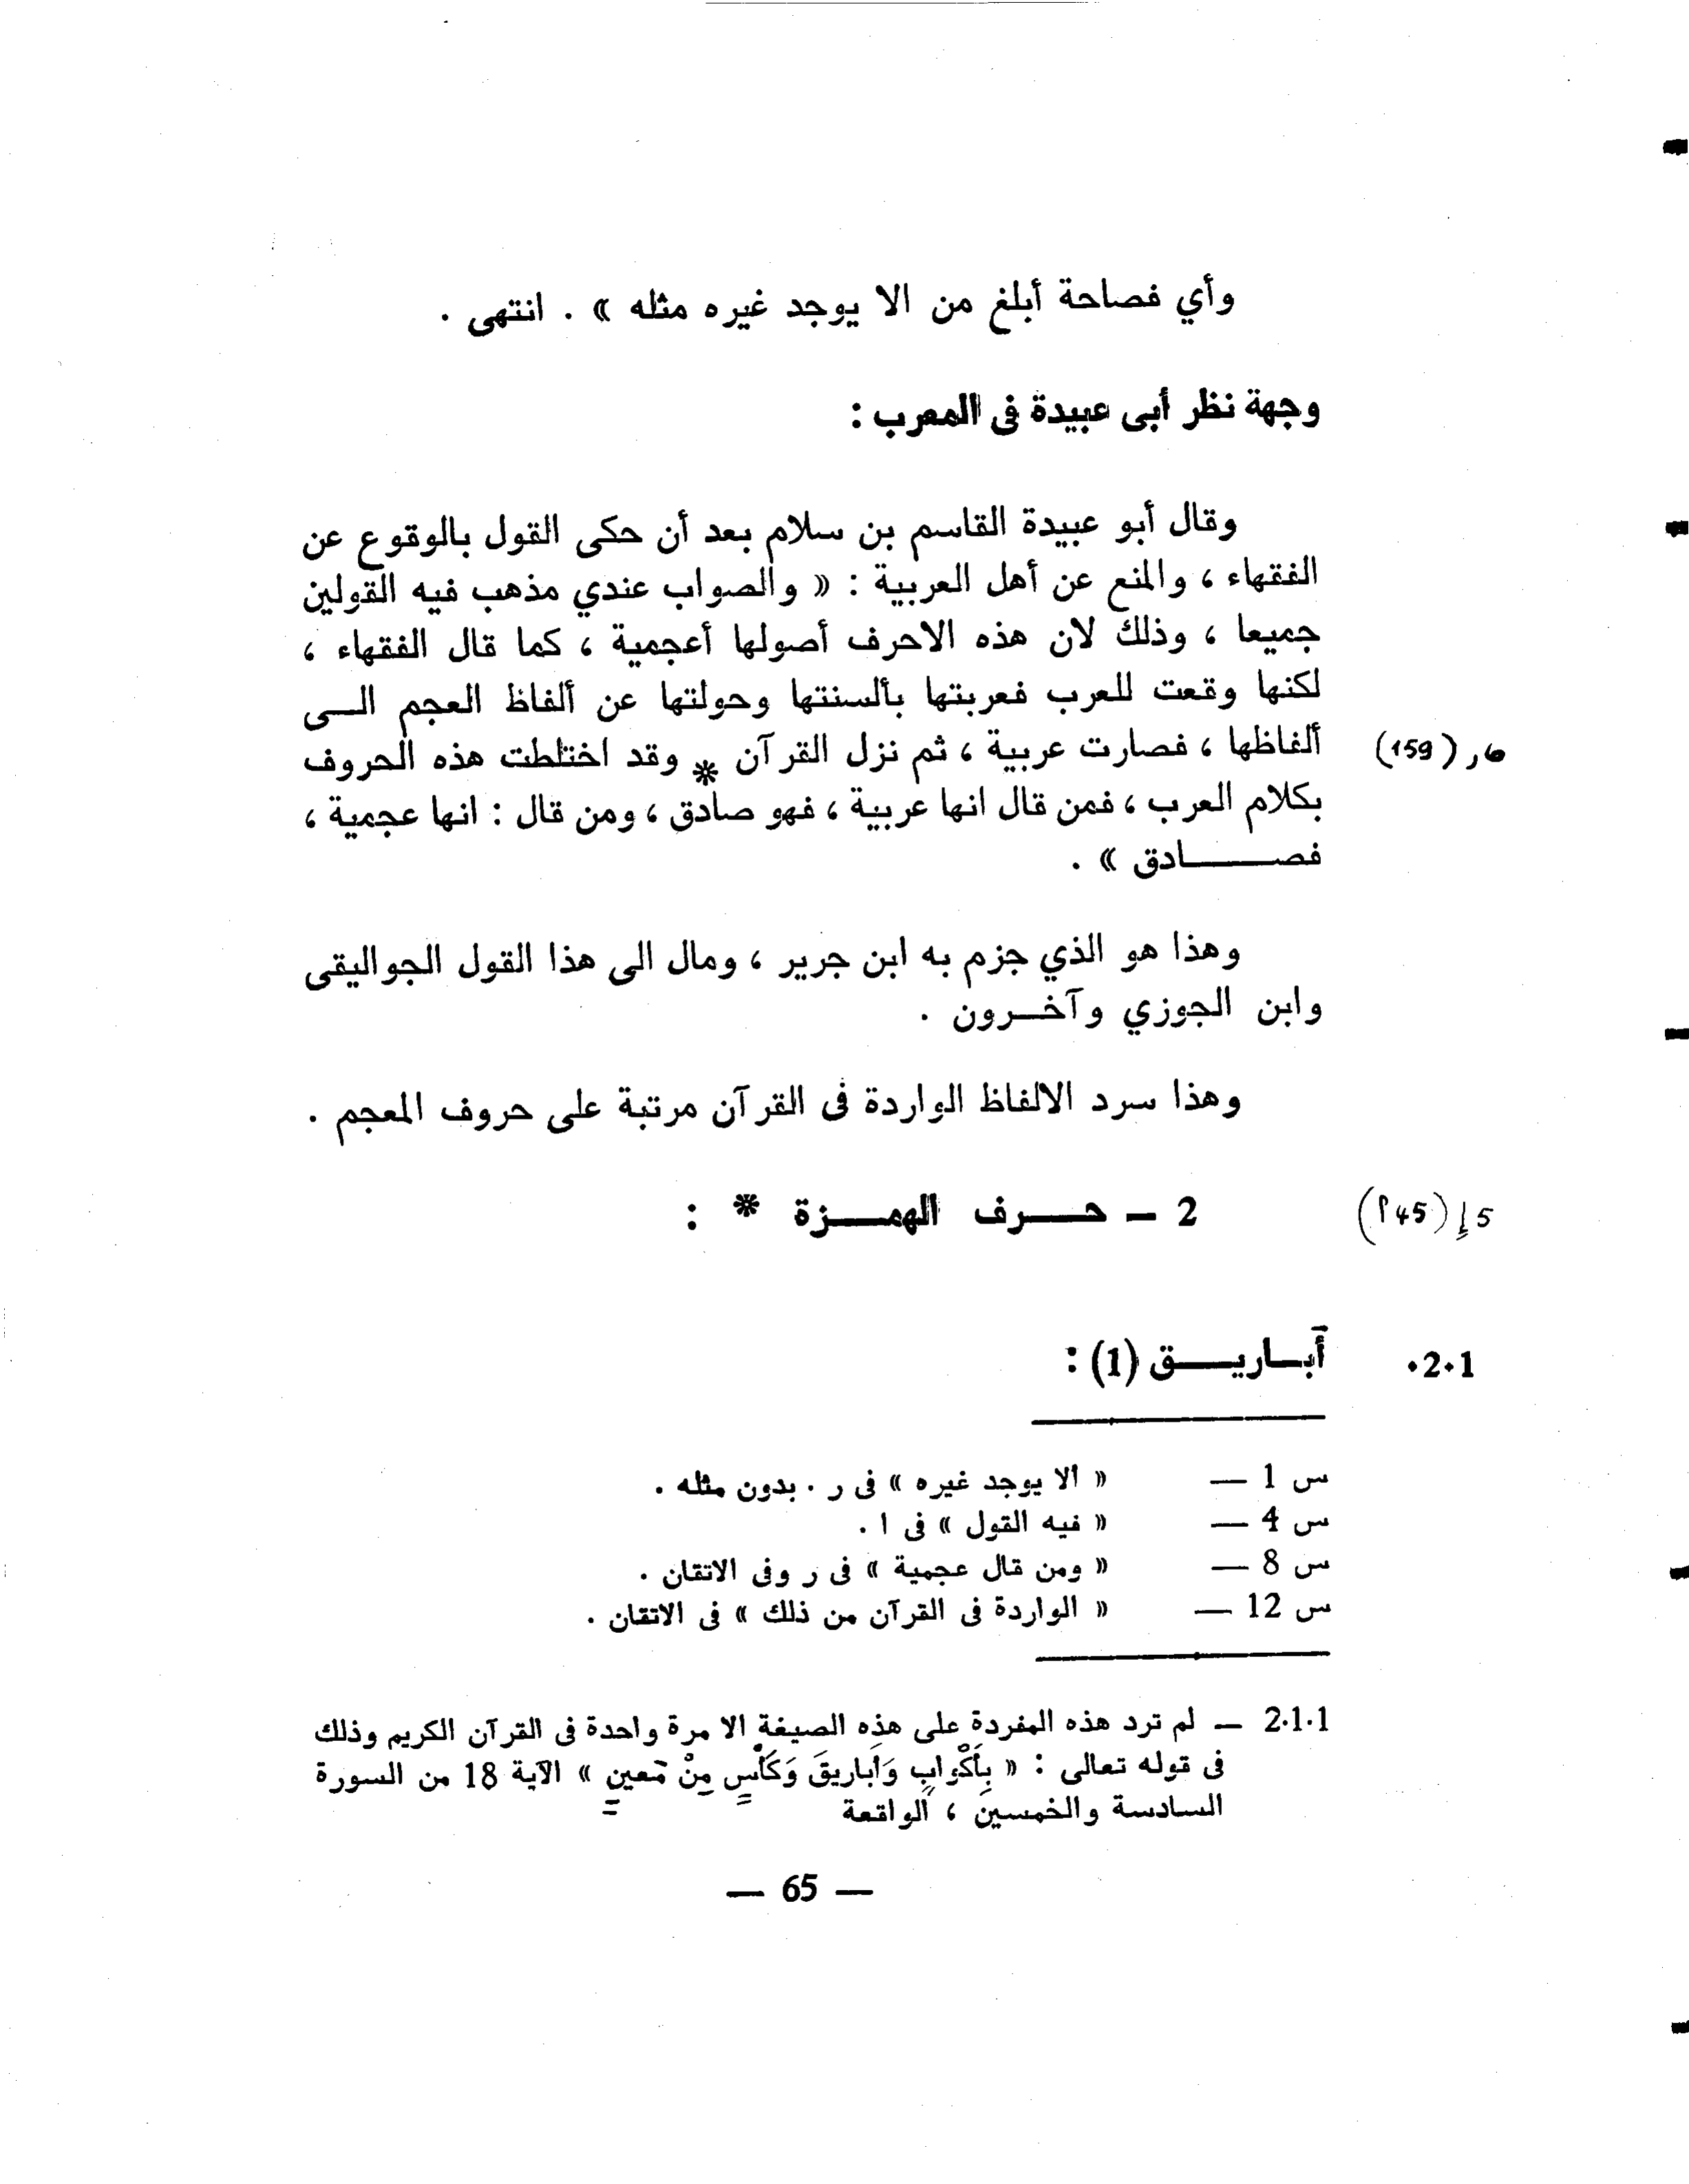 وأي فصاحة أبلغ من الا يوجد غيره مثله » . انتهى .
وجهة نظر أبى عبيدة فى المعرب :
وقال أبو عبيدة القاسم بن سلام بعد أن حكى القول بالوقوع عن
الفقهاء ، والمنع عن أهل العربية : « والصواب عندي مذهب فيه القولين
جميعا ، وذلك لان هذه الاحرف أصولها أعجمية ، كما قال الفقهاء ،
لكنها وقعت للعرب فعربتها بألسنتها وحولتها عن ألفاظ العجم الى
ألفاظها ، فصارت عربية ، ثم نزل القرآن * وقد اختلطت هذه الحروف
بكلام العرب ، فمن قال انها عربية ، فهو صادق ، ومن قال : انها عجمية ،
فصادق » .
وهذا هو الذي جزم به ابن جرير ، ومال الى هذا القول الجواليقى
وابن الجوزي وآخرون .
وهذا سرد الالفاظ الواردة فى القرآن مرتبة على حروف المعجم .
2 — حرف الهمزة * :
2.1. أباريق (1) :
س 1 — « الا يوجد غيره » فى ر . بدون مثله .
س 4 — « فيه القول » فى ا .
س 8 — « ومن قال عجمية » فى ر وفى الاتقان .
س 12 — « الواردة فى القرآن من ذلك » فى الاتقان .
2.1.1 — لم ترد هذه المفردة على هذه الصيغة الا مرة واحدة فى القرآن الكريم وذلك
فى قوله تعالى : « بِأَكْوابٍ وَأَباريقَ وَكَأْسٍ مِنْ مَعينٍ » الآية 18 من السورة
السادسة والخمسين ، الواقعة
— 65 —